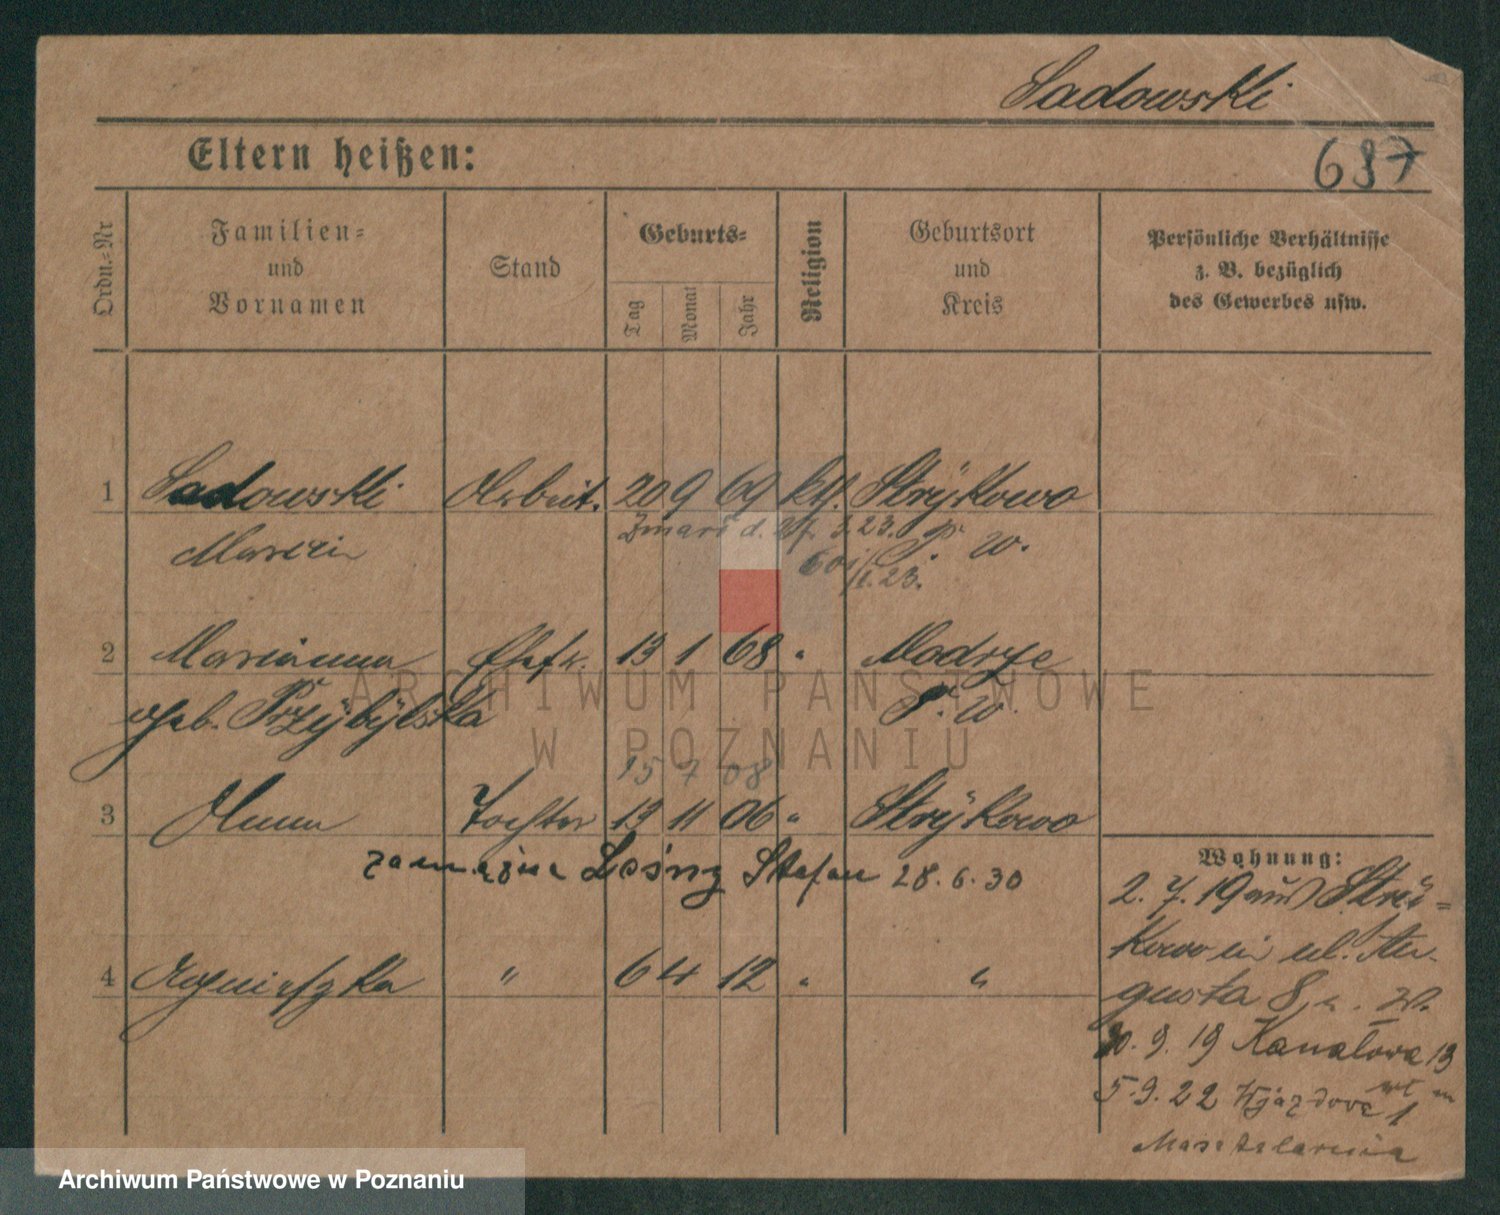 Sadowski
Eltern heißen:
687
Ordn.-Nr
Familien-
und
Vornamen
Stand
Geburts-
Tag
Monat
Jahr
Religion
Geburtsort
und
Kreis
Persönliche Verhältnisse
z. B. bezüglich
des Gewerbes usw.
1 Sadowski Arbeit. 20 9 69 kth. Strÿkowo
Zmarł d. 3.23.
Marcin P. W.
2 Marianna Ehefr. 13 1 68 " Modrze
geb. Przÿbÿlska P. W.
15 7 08
3 Anna Tochter 13 11 06 " Strÿkowo
zamężna Leśny Stefan 28.6.30
4 Agnieszka " 6 4 12 " "
Wohnung:
2. 7. 19 aus Strÿ-
kowo in ul. Au-
gusta 8
30. 9. 19 Kanałowa 13
5. 9. 22 Wjazdowa 1
Masztalarnia
ARCHIWUM PAŃSTWOWE
W POZNANIU
Archiwum Państwowe w Poznaniu